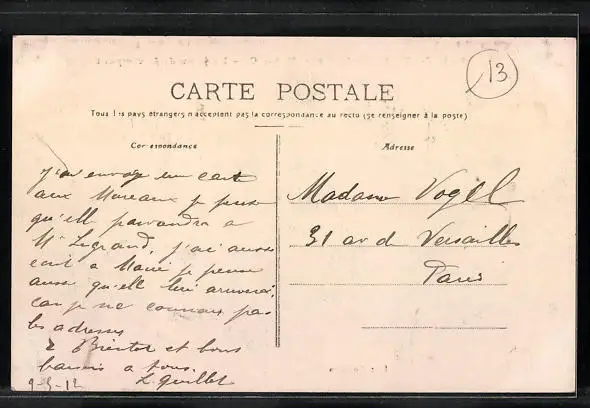 13
CARTE POSTALE
Tous les pays étrangers n'acceptent pas la correspondance au recto (se renseigner à la poste)
Correspondance
Adresse
J'ai envoyé une carte
aux Moreaux je pense
qu'elle parviendra a
Mr Legrand, j'ai aussi
écrit a Marie je pense
aussi qu'elle lui arrivera,
car je ne connais pas
les adresses
a Bientot et bons
baisers a tous.
L. Guillet
9-5-12
Madame Vogel
31 av de Versailles
Paris